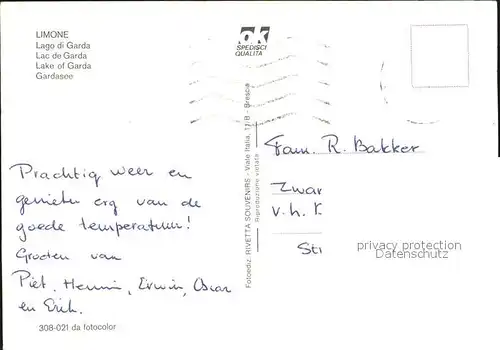 LIMONE
Lago di Garda
Lac de Garda
Lake of Garda
Gardasee
ok
SPEDISCI
QUALITÀ
Fotoediz. RIVETTA SOUVENIRS - Viale Italia, 11/B - Brescia
Riproduzione vietata
Prachtig weer en
genieten erg van de
goede temperatuur!
Groeten van
Piet, Hennie, Erwin, Oscar
en Erik.
Fam. R. Bakker
Zwar
v. h.
Str
privacy protection
Datenschutz
308-021 da fotocolor